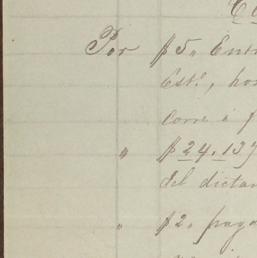 Por $5,, Entr
Est.º, hon
corre á f
" $24.137
del dictam
" $2,, paga